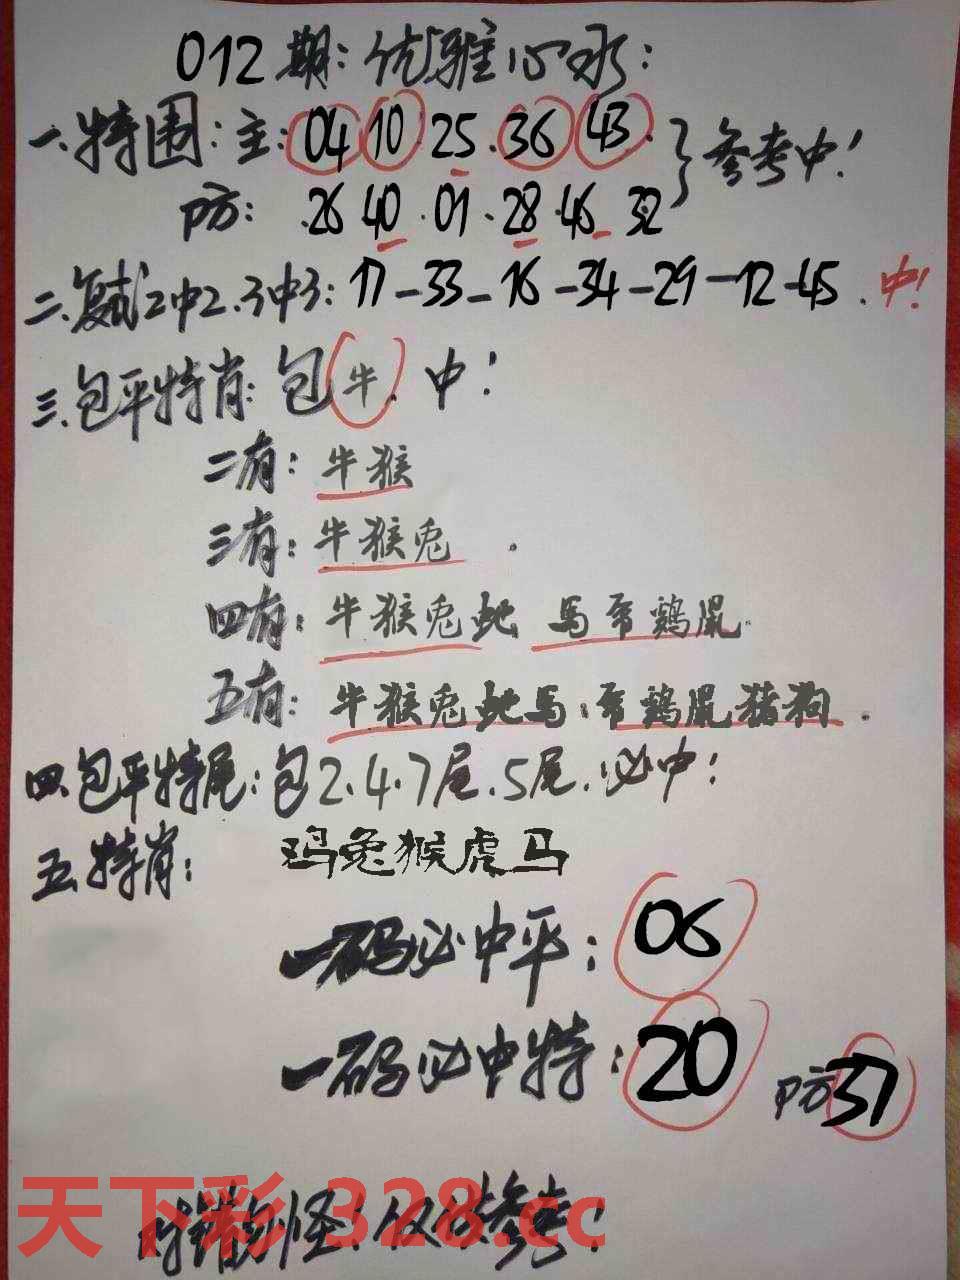 012期：优雅心水：
一.特围：主：04 10 25.36 43. 参考中！
防：.26 40.01.28.46.32
二.复试2中2.3中3：17-33-16-34-29-12-45.中！
三.包平特肖：包牛.中！
二有：牛猴
三有：牛猴兔.
四有：牛猴兔蛇 马帝鷄鼠.
五有：牛猴兔蛇马.帝鷄鼠猪狗.
四.包平特尾：包2.4.7尾.5尾.必中！
五.特肖：鸡兔猴虎马
一码必中平：06
一码必中特：20 防37
对错勿怪！仅供参考！
天下彩 328.cc